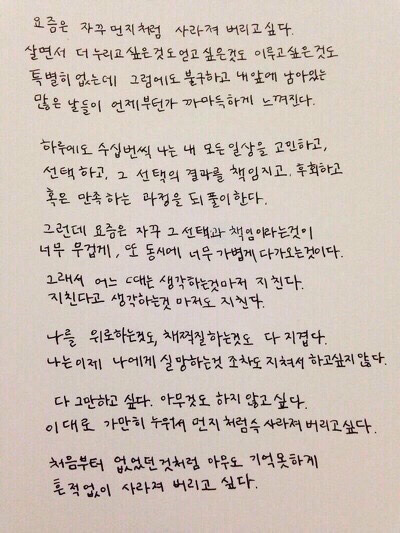 요즘은 자꾸 먼지처럼 사라져 버리고 싶다.
살면서 더 누리고 싶은것도 얻고 싶은것도 이루고 싶은것도
특별히 없는데 그럼에도 불구하고 내 앞에 남아있는
많은 날들이 언제부턴가 까마득하게 느껴진다.
하루에도 수십번씩 나는 내 모든 일상을 고민하고,
선택하고, 그 선택의 결과를 책임지고, 후회하고
혹은 만족하는 과정을 되풀이한다.
그런데 요즘은 자꾸 그 선택과 책임이라는것이
너무 무겁게, 또 동시에 너무 가볍게 다가오는것이다.
그래서 어느 때는 생각하는것마저 지친다.
지친다고 생각하는것 마저도 지친다.
나를 위로하는것도, 채찍질하는것도 다 지겹다.
나는 이제 나에게 실망하는것 조차도 지쳐서 하고싶지 않다.
다 그만하고 싶다. 아무것도 하지 않고 싶다.
이대로 가만히 누워서 먼지처럼 슥 사라져 버리고싶다.
처음부터 없었던 것처럼 아무도 기억못하게
흔적없이 사라져 버리고 싶다.